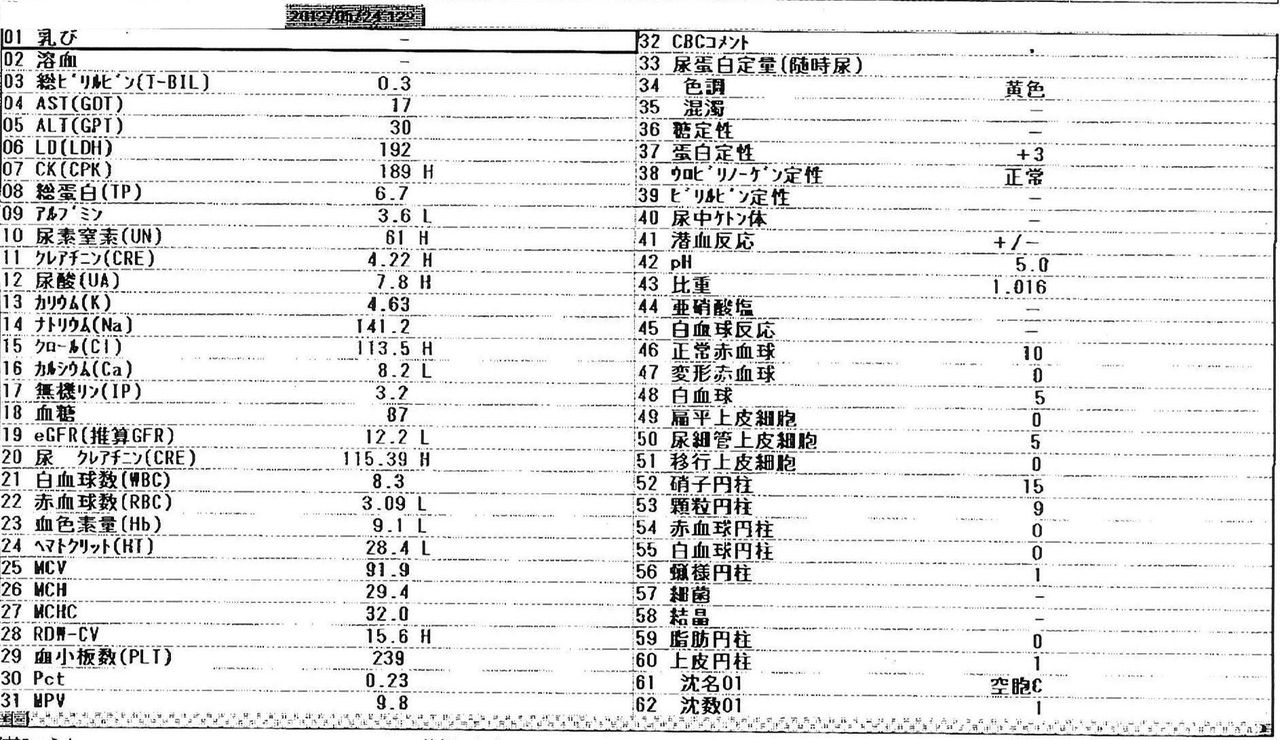 01 乳び －
02 溶血 －
03 総ﾋﾞﾘﾙﾋﾞﾝ(T-BIL) 0.3
04 AST(GOT) 17
05 ALT(GPT) 30
06 LD(LDH) 192
07 CK(CPK) 189 H
08 総蛋白(TP) 6.7
09 ｱﾙﾌﾞﾐﾝ 3.6 L
10 尿素窒素(UN) 61 H
11 ｸﾚｱﾁﾆﾝ(CRE) 4.22 H
12 尿酸(UA) 7.8 H
13 ｶﾘｳﾑ(K) 4.63
14 ﾅﾄﾘｳﾑ(Na) 141.2
15 ｸﾛｰﾙ(Cl) 113.5 H
16 ｶﾙｼｳﾑ(Ca) 8.2 L
17 無機ﾘﾝ(IP) 3.2
18 血糖 87
19 eGFR(推算GFR) 12.2 L
20 尿 ｸﾚｱﾁﾆﾝ(CRE) 115.39 H
21 白血球数(WBC) 8.3
22 赤血球数(RBC) 3.09 L
23 血色素量(Hb) 9.1 L
24 ﾍﾏﾄｸﾘｯﾄ(HT) 28.4 L
25 MCV 91.9
26 MCH 29.4
27 MCHC 32.0
28 RDW-CV 15.6 H
29 血小板数(PLT) 239
30 Pct 0.23
31 MPV 9.8
32 CBCｺﾒﾝﾄ
33 尿蛋白定量(随時尿)
34 色調 黄色
35 混濁 －
36 糖定性 －
37 蛋白定性 +3
38 ｳﾛﾋﾞﾘﾉｰｹﾞﾝ定性 正常
39 ﾋﾞﾘﾙﾋﾞﾝ定性 －
40 尿中ｹﾄﾝ体 －
41 潜血反応 +/-
42 pH 5.0
43 比重 1.016
44 亜硝酸塩 －
45 白血球反応 －
46 正常赤血球 10
47 変形赤血球 0
48 白血球 5
49 扁平上皮細胞 0
50 尿細管上皮細胞 5
51 移行上皮細胞 0
52 硝子円柱 15
53 顆粒円柱 9
54 赤血球円柱 0
55 白血球円柱 0
56 蝋様円柱 1
57 細菌 －
58 結晶 －
59 脂肪円柱 0
60 上皮円柱 1
61 沈名01 空胞C
62 沈数01 1